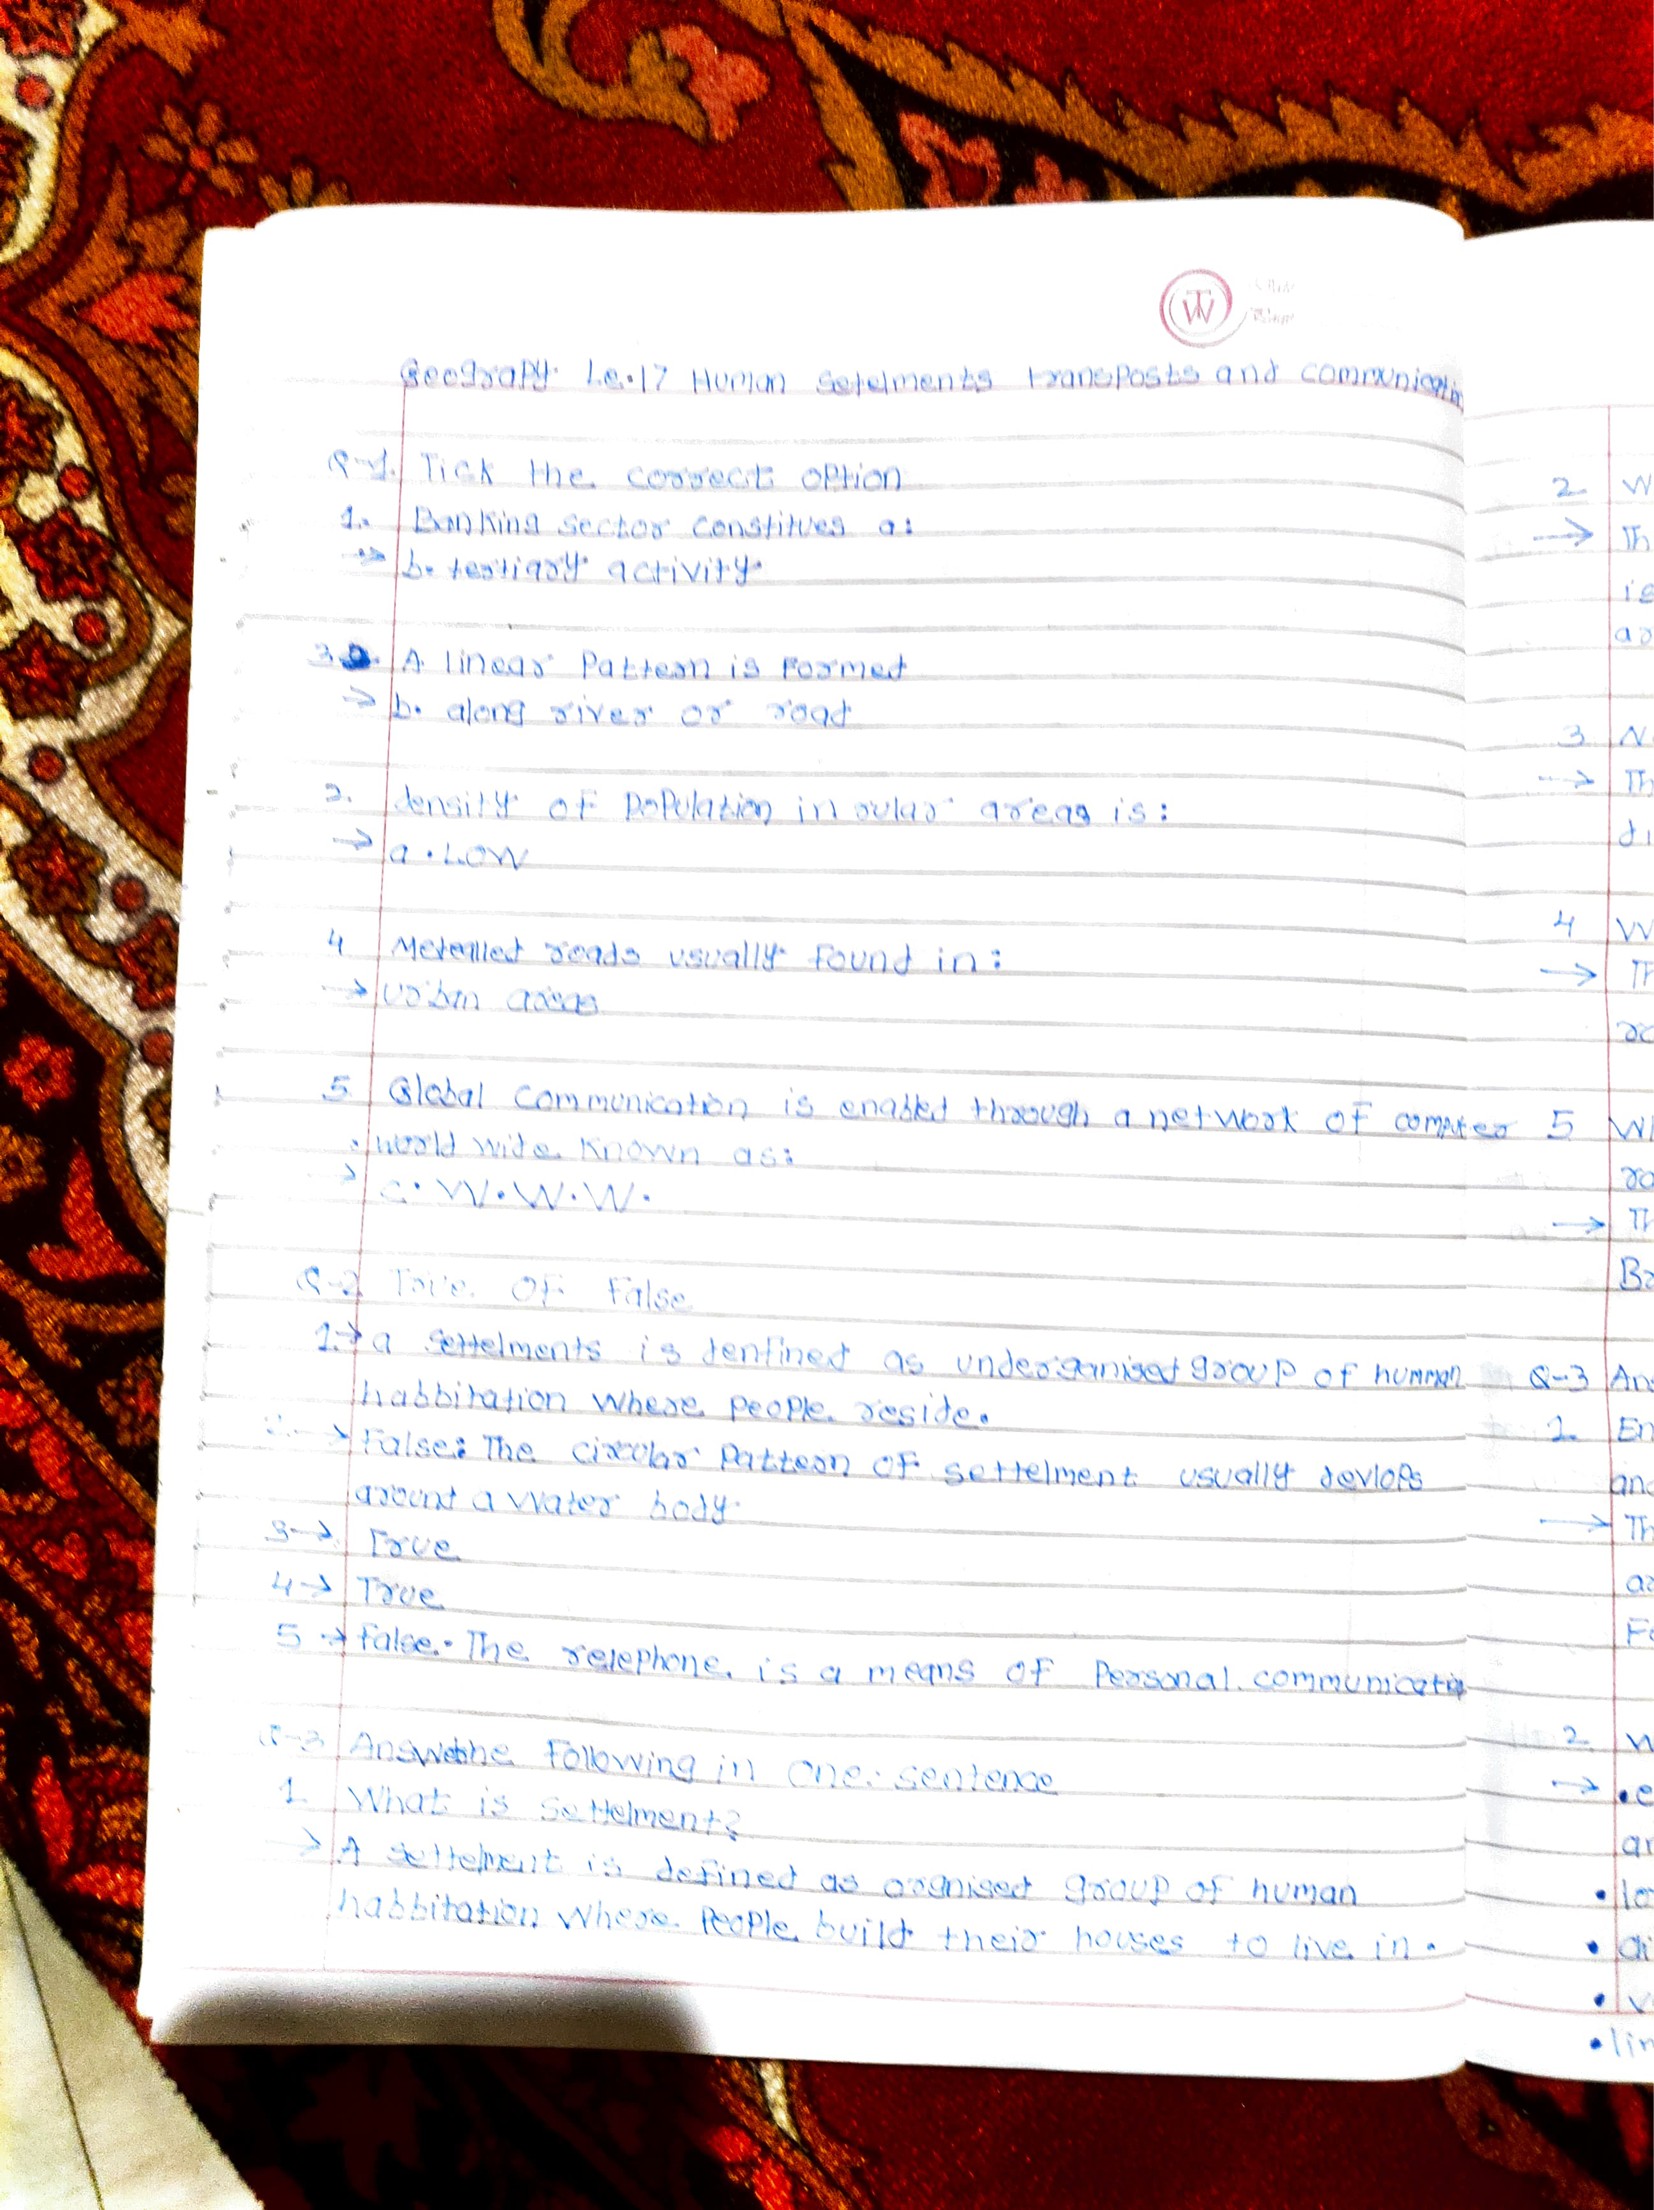 Geograpy Le.17 Human Setelments transposts and communicatin
Q-1. Tick the correct option
1. Banking sector constitues a:
→ b. tertiary activity
3. A linear Pattern is Formed
→ b. along river or road
2. density of Population in rular areas is:
→ a. Low
4 Metealled roads usually found in:
→ urban areas
5 Global communication is enabled through a network of computer
world wide known as:
→ c. W.W.W.
Q-2 True Or False
1.→ a settelments is denfined as underganised group of human
habbitation where people reside.
→ False: The circular Pattern OF settelment usually devlops
around a water body
3→ True
4→ True
5→ false. The relephone is a means OF Personal communicatio
Q-3 Answethe Following in one sentence
1 What is settelment?
→ A settelment is defined as orgnised group of human
habbitation where People build their houses to live in.
2 W
→ Th
is
ar
3 N
→ Th
di
4 W
→ Th
5 Wh
ro
→ Th
Ba
Q-3 Ans
1 En
and
→ Th
Fo
2 W
→ .e
ar
• lo
• di
• v
• lin